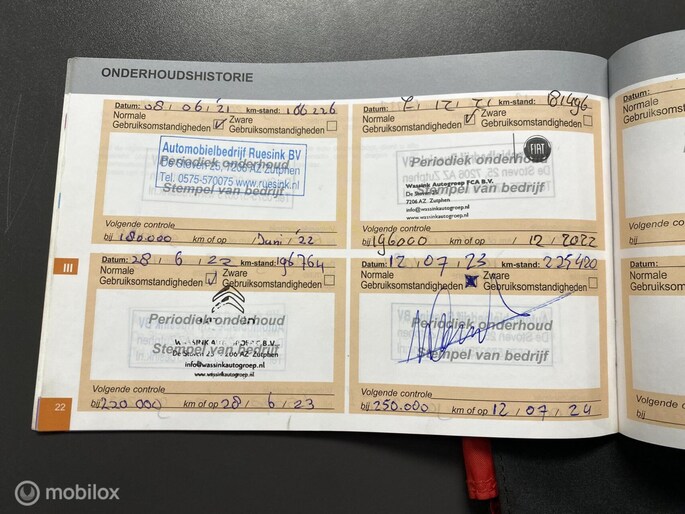 ONDERHOUDSHISTORIE
Datum: 08 / 06 / '21 km-stand: 166226
Normale Gebruiksomstandigheden Zware Gebruiksomstandigheden
Automobielbedrijf Ruesink BV
Periodiek onderhoud
De Stoven 25, 7206 AZ Zutphen
Tel. 0575-570075 www.ruesink.nl
Stempel van bedrijf
Volgende controle
bij 180.000 km of op Juni / '22
Datum: km-stand:
Normale Gebruiksomstandigheden Zware Gebruiksomstandigheden
FIAT
Periodiek onderhoud
Wassink Autogroep FCA B.V.
De Stoven
Stempel van bedrijf
7206 AZ Zutphen
info@wassinkautogroep.nl
www.wassinkautogroep.nl
Volgende controle
bij 196000 km of op / 12 / 2022
III
Datum: 28 / 6 / 22 km-stand: 196764
Normale Gebruiksomstandigheden Zware Gebruiksomstandigheden
Periodiek onderhoud
De Stoven 7206 AZ Zutphen
Stempel van bedrijf
info@wassinkautogroep.nl
www.wassinkautogroep.nl
Volgende controle
bij 220.000 km of op 28 / 6 / 23
Datum: 12 / 07 / 23 km-stand: 225400
Normale Gebruiksomstandigheden Zware Gebruiksomstandigheden
Periodiek onderhoud
Stempel van bedrijf
Volgende controle
bij 250.000 km of op 12 / 07 / 24
22
Datum:
Normale
Gebruiksom
Volgende
bij
Datum:
Normale
Gebruiksom
Volgend
bij
mobilox